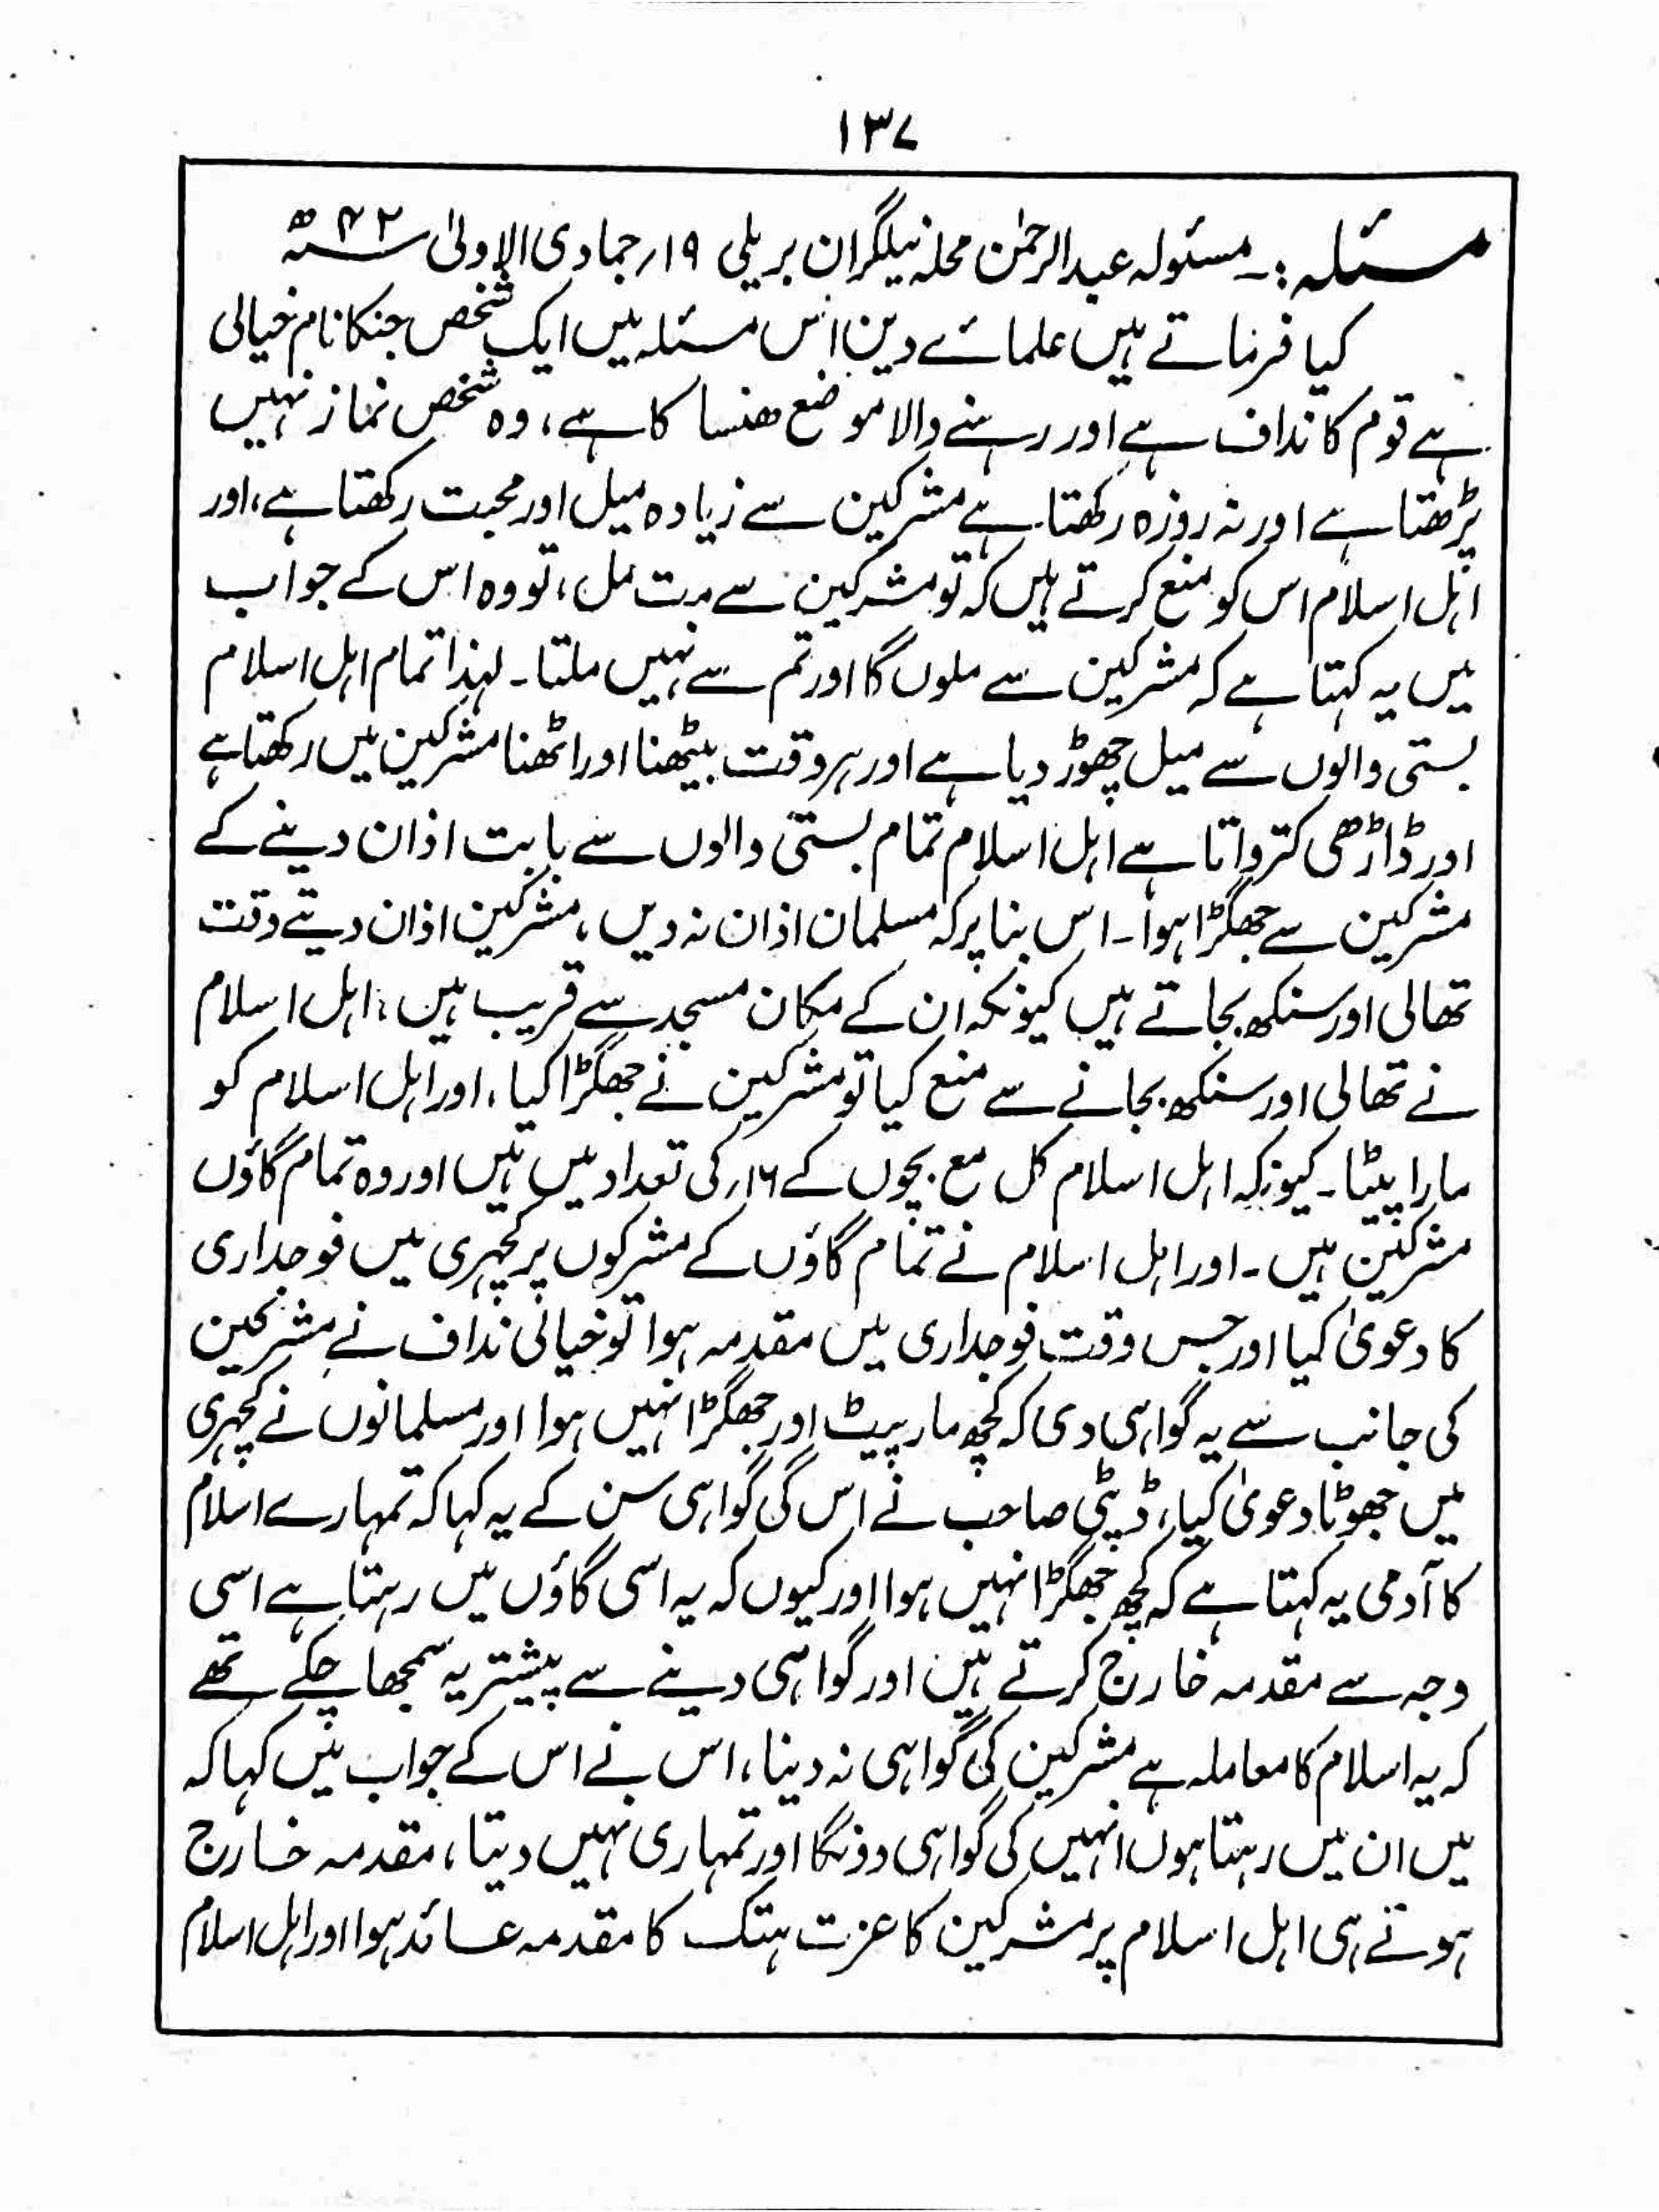 ۱۳۷
مسئلہ:۔ مسئولہ عبدالرحمٰن محلہ نیلگران بریلی ۱۹؍ جمادی الاولیٰ ۴۲ھ
کیا فرماتے ہیں علمائے دین اس مسئلہ میں ایک شخص جنکا نام خیالی
ہے قوم کا نداف ہے اور رہنے والا موضع ھنسا کا ہے، وہ شخص نماز نہیں
پڑھتا ہے اور نہ روزہ رکھتا ہے مشرکین سے زیادہ میل اور محبت رکھتا ہے، اور
اہل اسلام اس کو منع کرتے ہیں کہ تو مشرکین سے مت مل، تو وہ اس کے جواب
میں یہ کہتا ہے کہ مشرکین سے ملوں گا اور تم سے نہیں ملتا۔ لہذا تمام اہل اسلام
بستی والوں سے میل چھوڑ دیا ہے اور ہر وقت بیٹھنا اور اٹھنا مشرکین میں رکھتا ہے
اور ڈاڑھی کترواتا ہے اہل اسلام تمام بستی والوں سے بابت اذان دینے کے
مشرکین سے جھگڑا ہوا۔ اس بنا پر کہ مسلمان اذان نہ دیں، مشرکین اذان دیتے وقت
تھالی اور سنکھ بجاتے ہیں کیونکہ ان کے مکان مسجد سے قریب ہیں، اہل اسلام
نے تھالی اور سنکھ بجانے سے منع کیا تو مشرکین نے جھگڑا کیا، اور اہل اسلام کو
مارا پیٹا۔ کیونکہ اہل اسلام کل مع بچوں کے ۱۶؍ کی تعداد میں ہیں اور وہ تمام گاؤں
مشرکین ہیں۔ اور اہل اسلام نے تمام گاؤں کے مشرکوں پر کچہری میں فوجداری
کا دعویٰ کیا اور جس وقت فوجداری میں مقدمہ ہوا تو خیالی نداف نے مشرکین
کی جانب سے یہ گواہی دی کہ کچھ مار پیٹ اور جھگڑا نہیں ہوا اور مسلمانوں نے کچہری
میں جھوٹا دعویٰ کیا، ڈپٹی صاحب نے اس کی گواہی سن کے یہ کہا کہ تمہارے اسلام
کا آدمی یہ کہتا ہے کہ کچھ جھگڑا نہیں ہوا اور کیوں کہ یہ اسی گاؤں میں رہتا ہے اسی
وجہ سے مقدمہ خارج کرتے ہیں اور گواہی دینے سے پیشتر یہ سمجھا چکے تھے
کہ یہ اسلام کا معاملہ ہے مشرکین کی گواہی نہ دینا، اس نے اس کے جواب میں کہا کہ
میں ان میں رہتا ہوں انہیں کی گواہی دونگا اور تمہاری نہیں دیتا، مقدمہ خارج
ہوتے ہی اہل اسلام پر مشرکین کا عزت ہتک کا مقدمہ عائد ہوا اور اہل اسلام